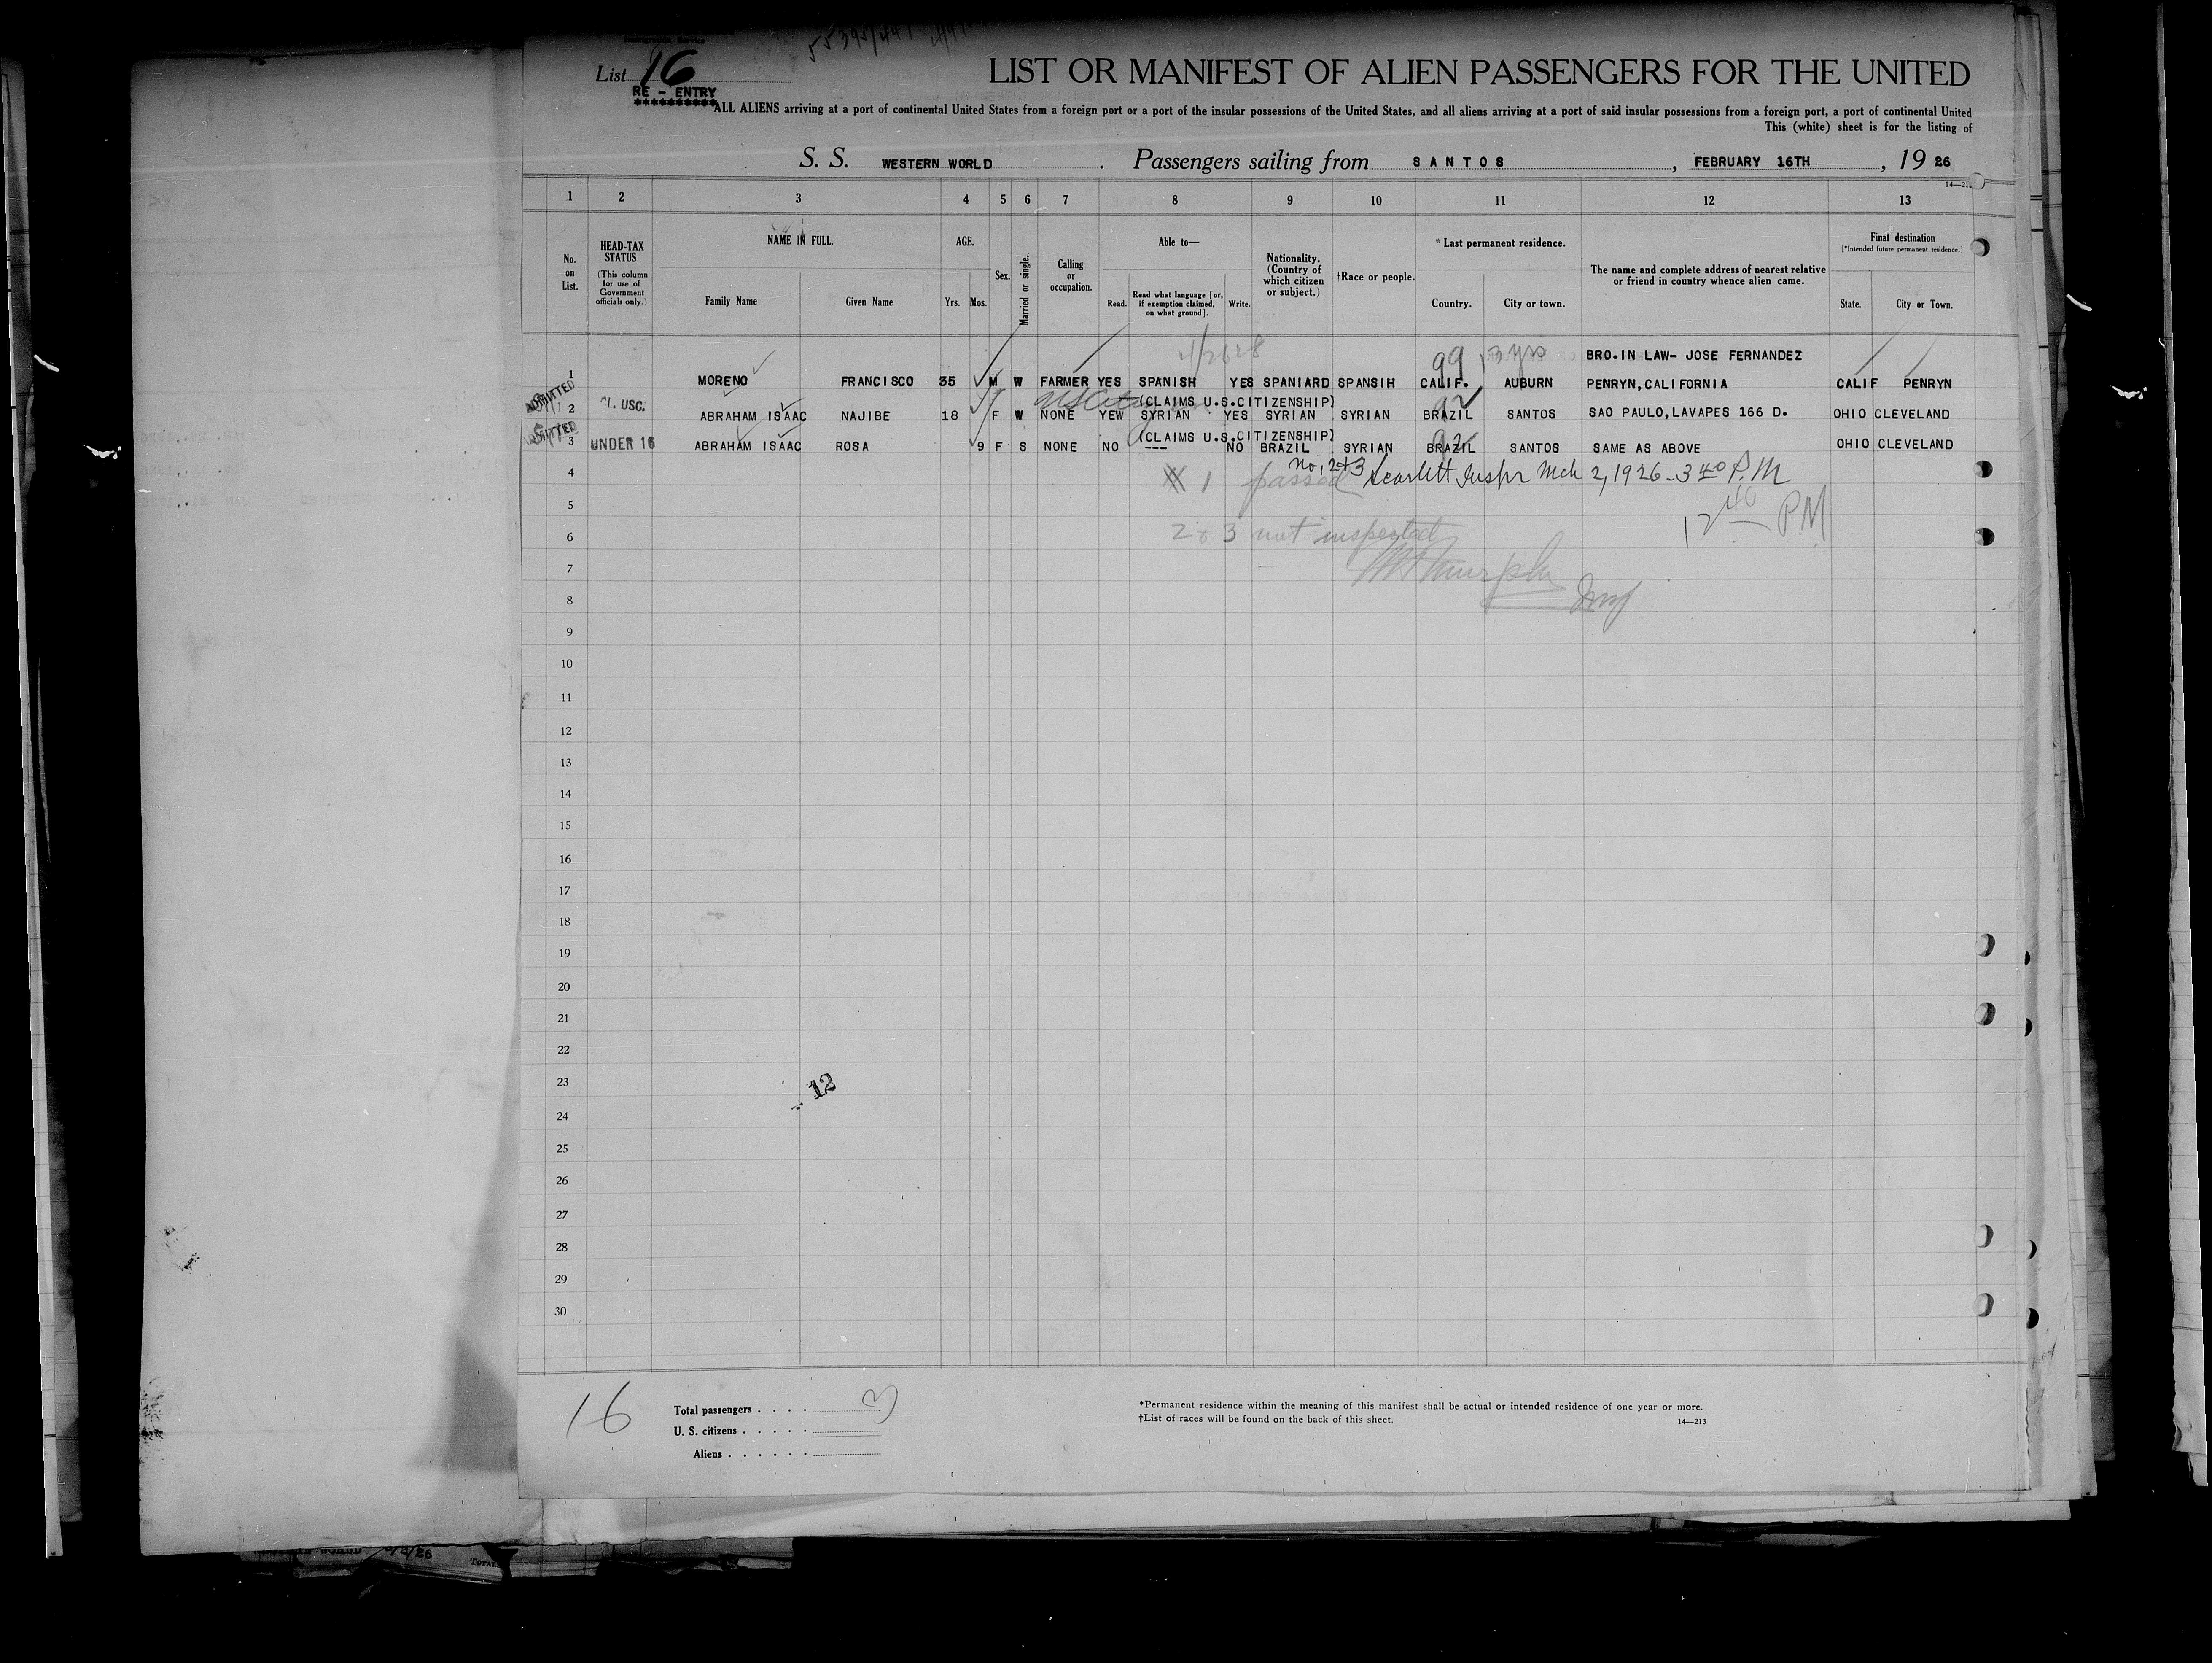 55395/441
List 16
RE - ENTRY
**********
LIST OR MANIFEST OF ALIEN PASSENGERS FOR THE UNITED
ALL ALIENS arriving at a port of continental United States from a foreign port or a port of the insular possessions of the United States, and all aliens arriving at a port of said insular possessions from a foreign port, a port of continental United
This (white) sheet is for the listing of
S. S. WESTERN WORLD . Passengers sailing from SANTOS , FEBRUARY 16TH , 19 26
1 2 3 4 5 6 7 8 9 10 11 12 13
No. on List.
HEAD-TAX STATUS (This column for use of Government officials only.)
NAME IN FULL. Family Name Given Name
AGE. Yrs. Mos.
Sex.
Married or single.
Calling or occupation.
Able to— Read. Read what language [or, if exemption claimed, on what ground]. Write.
Nationality. (Country of which citizen or subject.)
†Race or people.
*Last permanent residence. Country. City or town.
The name and complete address of nearest relative or friend in country whence alien came.
Final destination [*Intended future permanent residence.] State. City or Town.
99 13 yrs BRO.IN LAW- JOSE FERNANDEZ
1 MORENO FRANCISCO 35 M W FARMER YES SPANISH YES SPANIARD SPANSIH CALIF. AUBURN PENRYN,CALIFORNIA CALIF PENRYN
ADMITTED (CLAIMS U.S.CITIZENSHIP) 92
2 CL. USC. ABRAHAM ISAAC NAJIBE 18 F W NONE YEW SYRIAN YES SYRIAN SYRIAN BRAZIL SANTOS SAO PAULO,LAVAPES 166 D. OHIO CLEVELAND
ADMITTED (CLAIMS U.S.CITIZENSHIP)
3 UNDER 16 ABRAHAM ISAAC ROSA 9 F S NONE NO --- NO BRAZIL SYRIAN BRAZIL SANTOS SAME AS ABOVE OHIO CLEVELAND
4 1 passed No, 2+3 Scarlett Inspr Mch 2, 1926 - 3 40 P.M
5 12 40 PM
6 2 & 3 not inspected
7 Murphy
8 Insp
9
10
11
12
13
14
15
16
17
18
19
20
21
22
23
12
24
25
26
27
28
29
30
16
Total passengers . . . . 3
U. S. citizens . . . . .
Aliens . . . . . .
*Permanent residence within the meaning of this manifest shall be actual or intended residence of one year or more.
†List of races will be found on the back of this sheet. 14—213